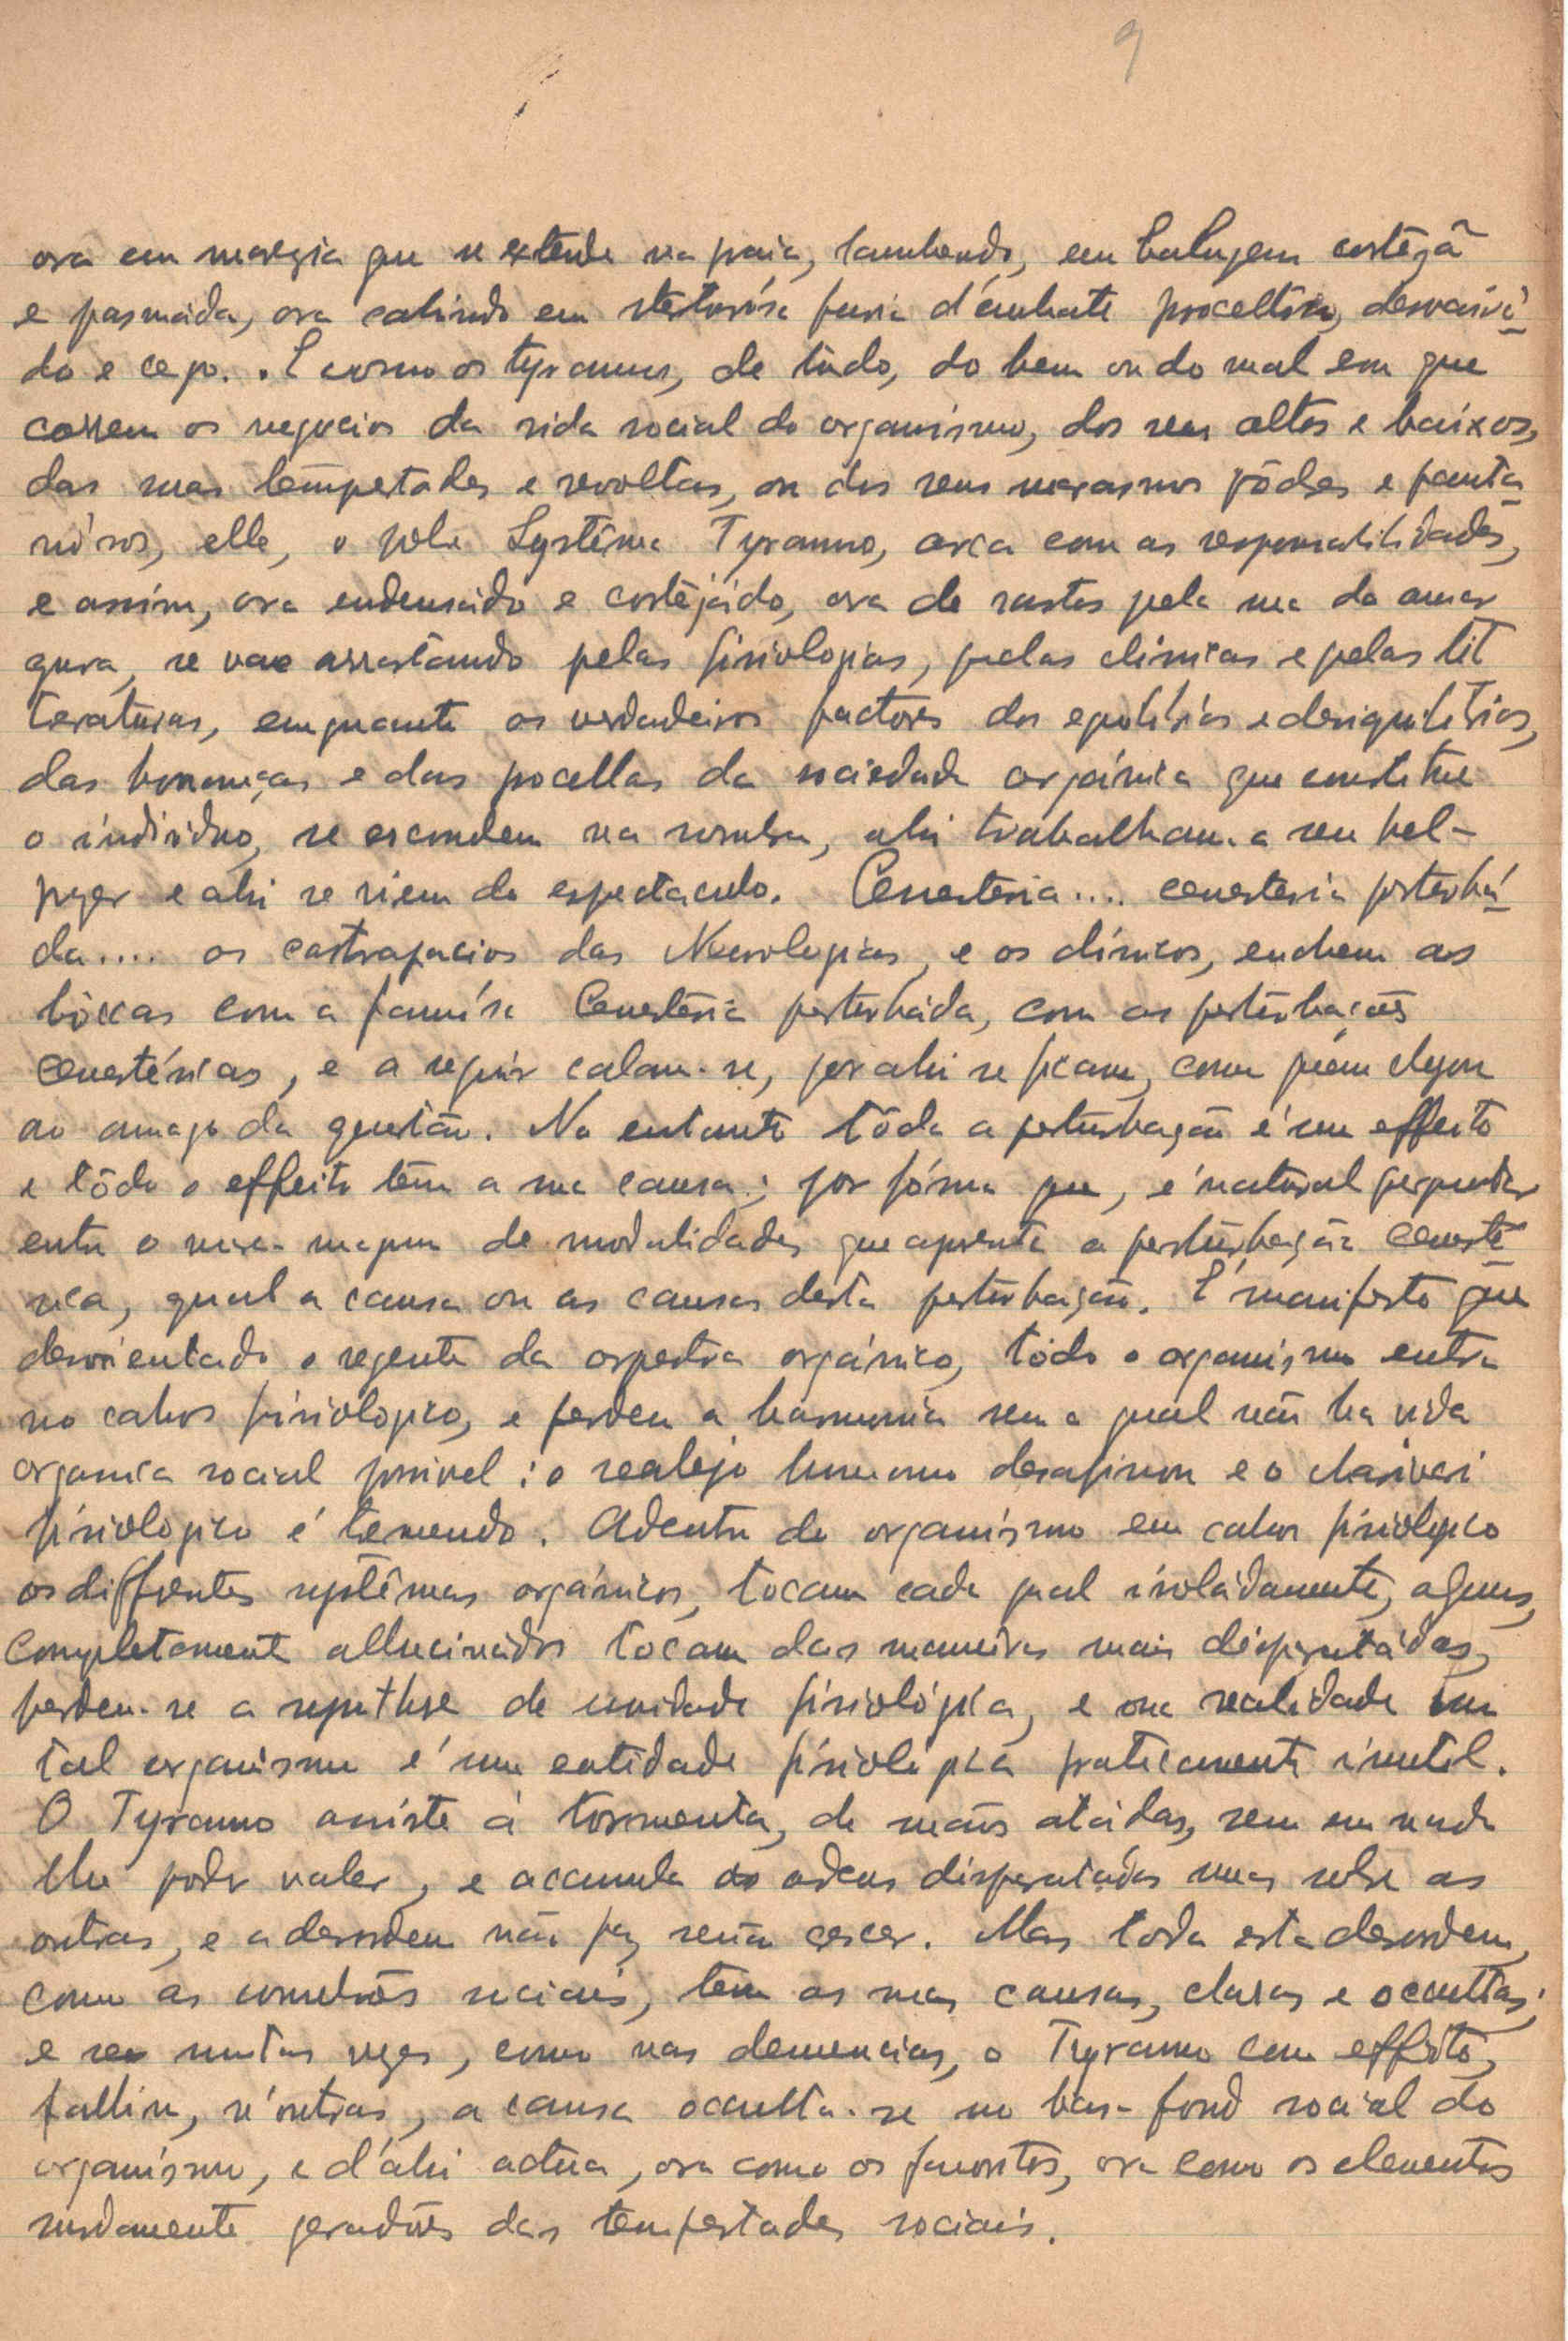 9
ora em maresia que se extende na praia, lambendo, em bafugem cortezã
e pasmáda, ora cahindo em stertorósa furia d'embate procellôso, desvairá-
do e cego.. E como os tyrannos, de tudo, do bem ou do mal em que
correm os negocios da vida social do organísmo, dos seus altos e baixos,
das suas tempestades e revoltas, ou dos seus marasmos pôdres e panta-
nósos, elle, o pobre Systêma Tyranno, arca com as responsabilidades,
e assim, ora endeusádo e cortejádo, ora de rastos pela rua da amar
gura, se vae arrastando pelas fisiologias, pelas clinicas e pelas lit
teraturas, emquanto os verdadeiros factores dos equilibrios e desiquilibrios,
das bonanças e das procellas da sociedade orgánica que constitue
o indivíduo, se escondem na sombra, ahi trabalham a seu bel-
prazer e ahi se riem do espectaculo. Cenestesia.... cenestesia pertubá-
da.... os cartapacios das Neurologias, e os clínicos, enchem as
bôccas com a famósa Cenestésia perturbáda, com as perturbações
cenestésicas, e a seguir calam-se, por ahi se ficam, como quem chegou
ao amago da questão. No entanto tôda a perturbação é um effeito
e tôdo o effeito têm a sua causa; por fórma que, é natural perguntar
entre o mare-magnum de modalidades que apresenta a perturbação cenesté-
sica, qual a causa ou as causas desta perturbação. É manifesto que
desorientado o regente da orquestra orgánica, tôdo o organismo entra
no cahos fisiologico, e perdeu a harmonia sem a qual não ha vida
organica social possivel: o realejo humano desafinou e o charivari
fisiologico é tremendo. Adentro do organísmo em cahos fisiologico
os differentes systêmas orgánicos, tocam cada qual isoládamente, alguns,
completamente allucinádos tocam das maneiras mais disparatádas,
perdeu-se a synthese de unidade fisiológica, e na realidade um
tal organismo é uma entidade fisiologica praticamente inutil.
O Tyranno assiste á tormenta, de mãos atádas, sem em nada
lhe poder valer, e acumula as ordens disparatádas umas sobre as
outras, e a desordem não faz senão crescer. Mas toda esta desordem,
como as convulsões sociais, têm as suas causas, claras e occultas;
e se muitas vezes, como nas demencias, o Tyranno com effeito,
falliu, n'outras, a causa occulta-se no bas-fond social do
organísmo, e d'ahi actua, ora como os favoritos, ora como os elementos
surdamente geradôres das tempestades sociais.